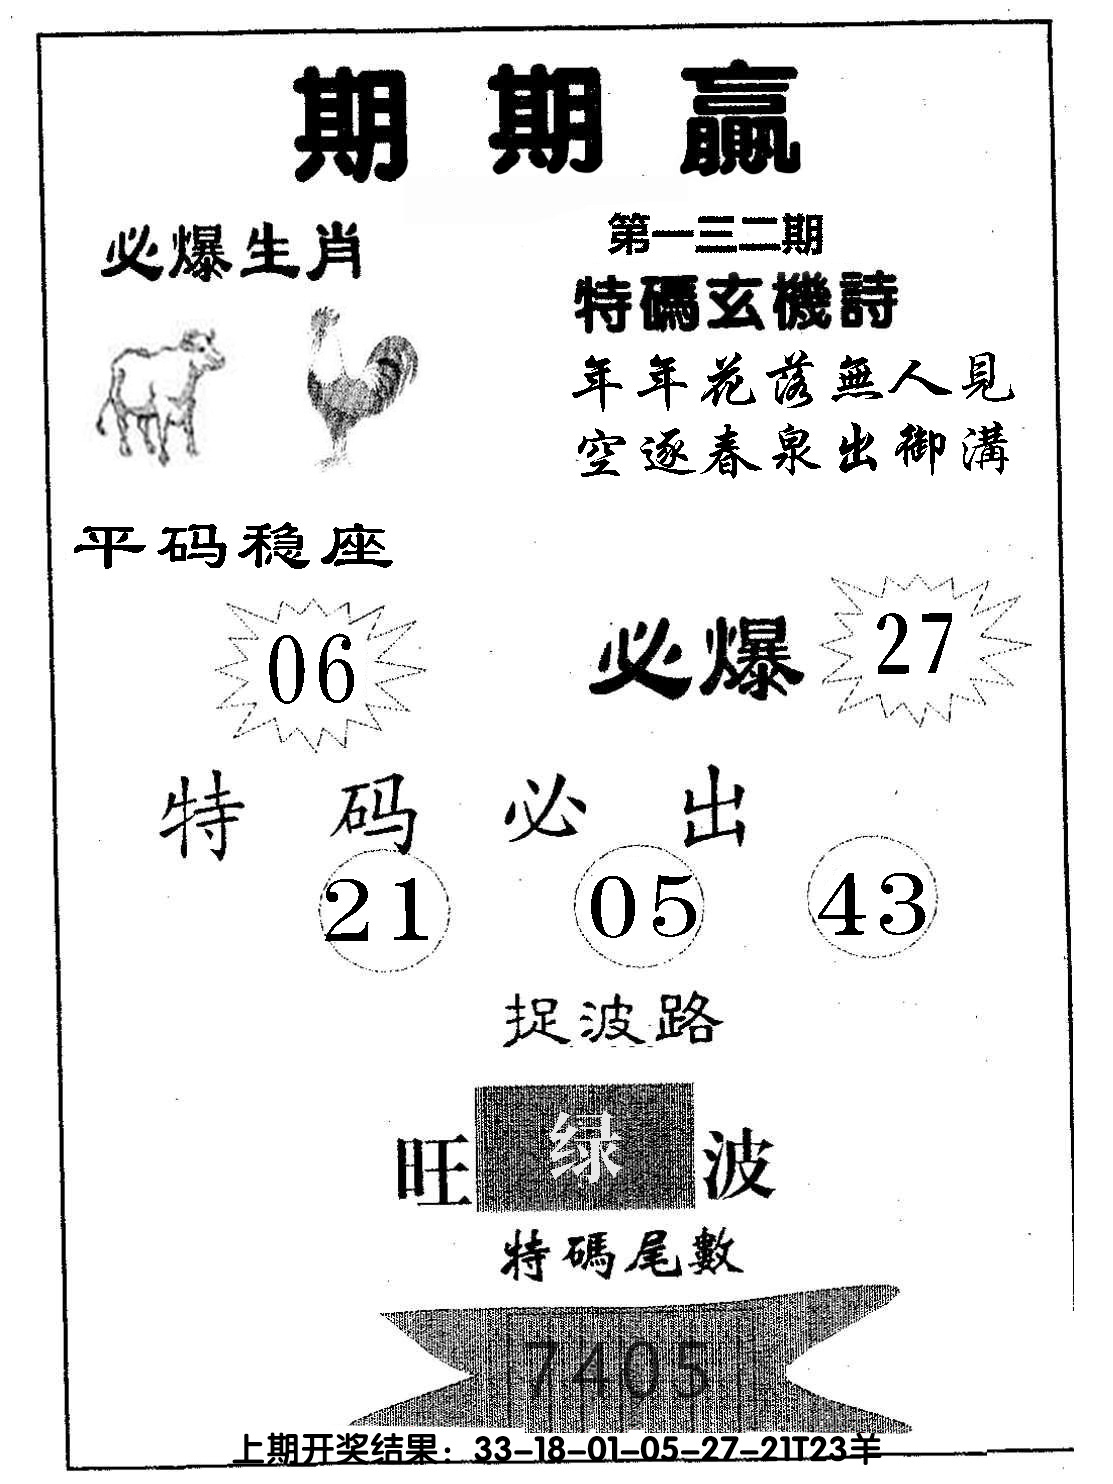 期期赢
必爆生肖
第一三二期
特碼玄機詩
年年花落無人見
空逐春泉出御溝
平码稳座
06
必爆 27
特码必出
21 05 43
捉波路
旺 绿 波
特碼尾數
7405
上期开奖结果：33-18-01-05-27-21T23羊